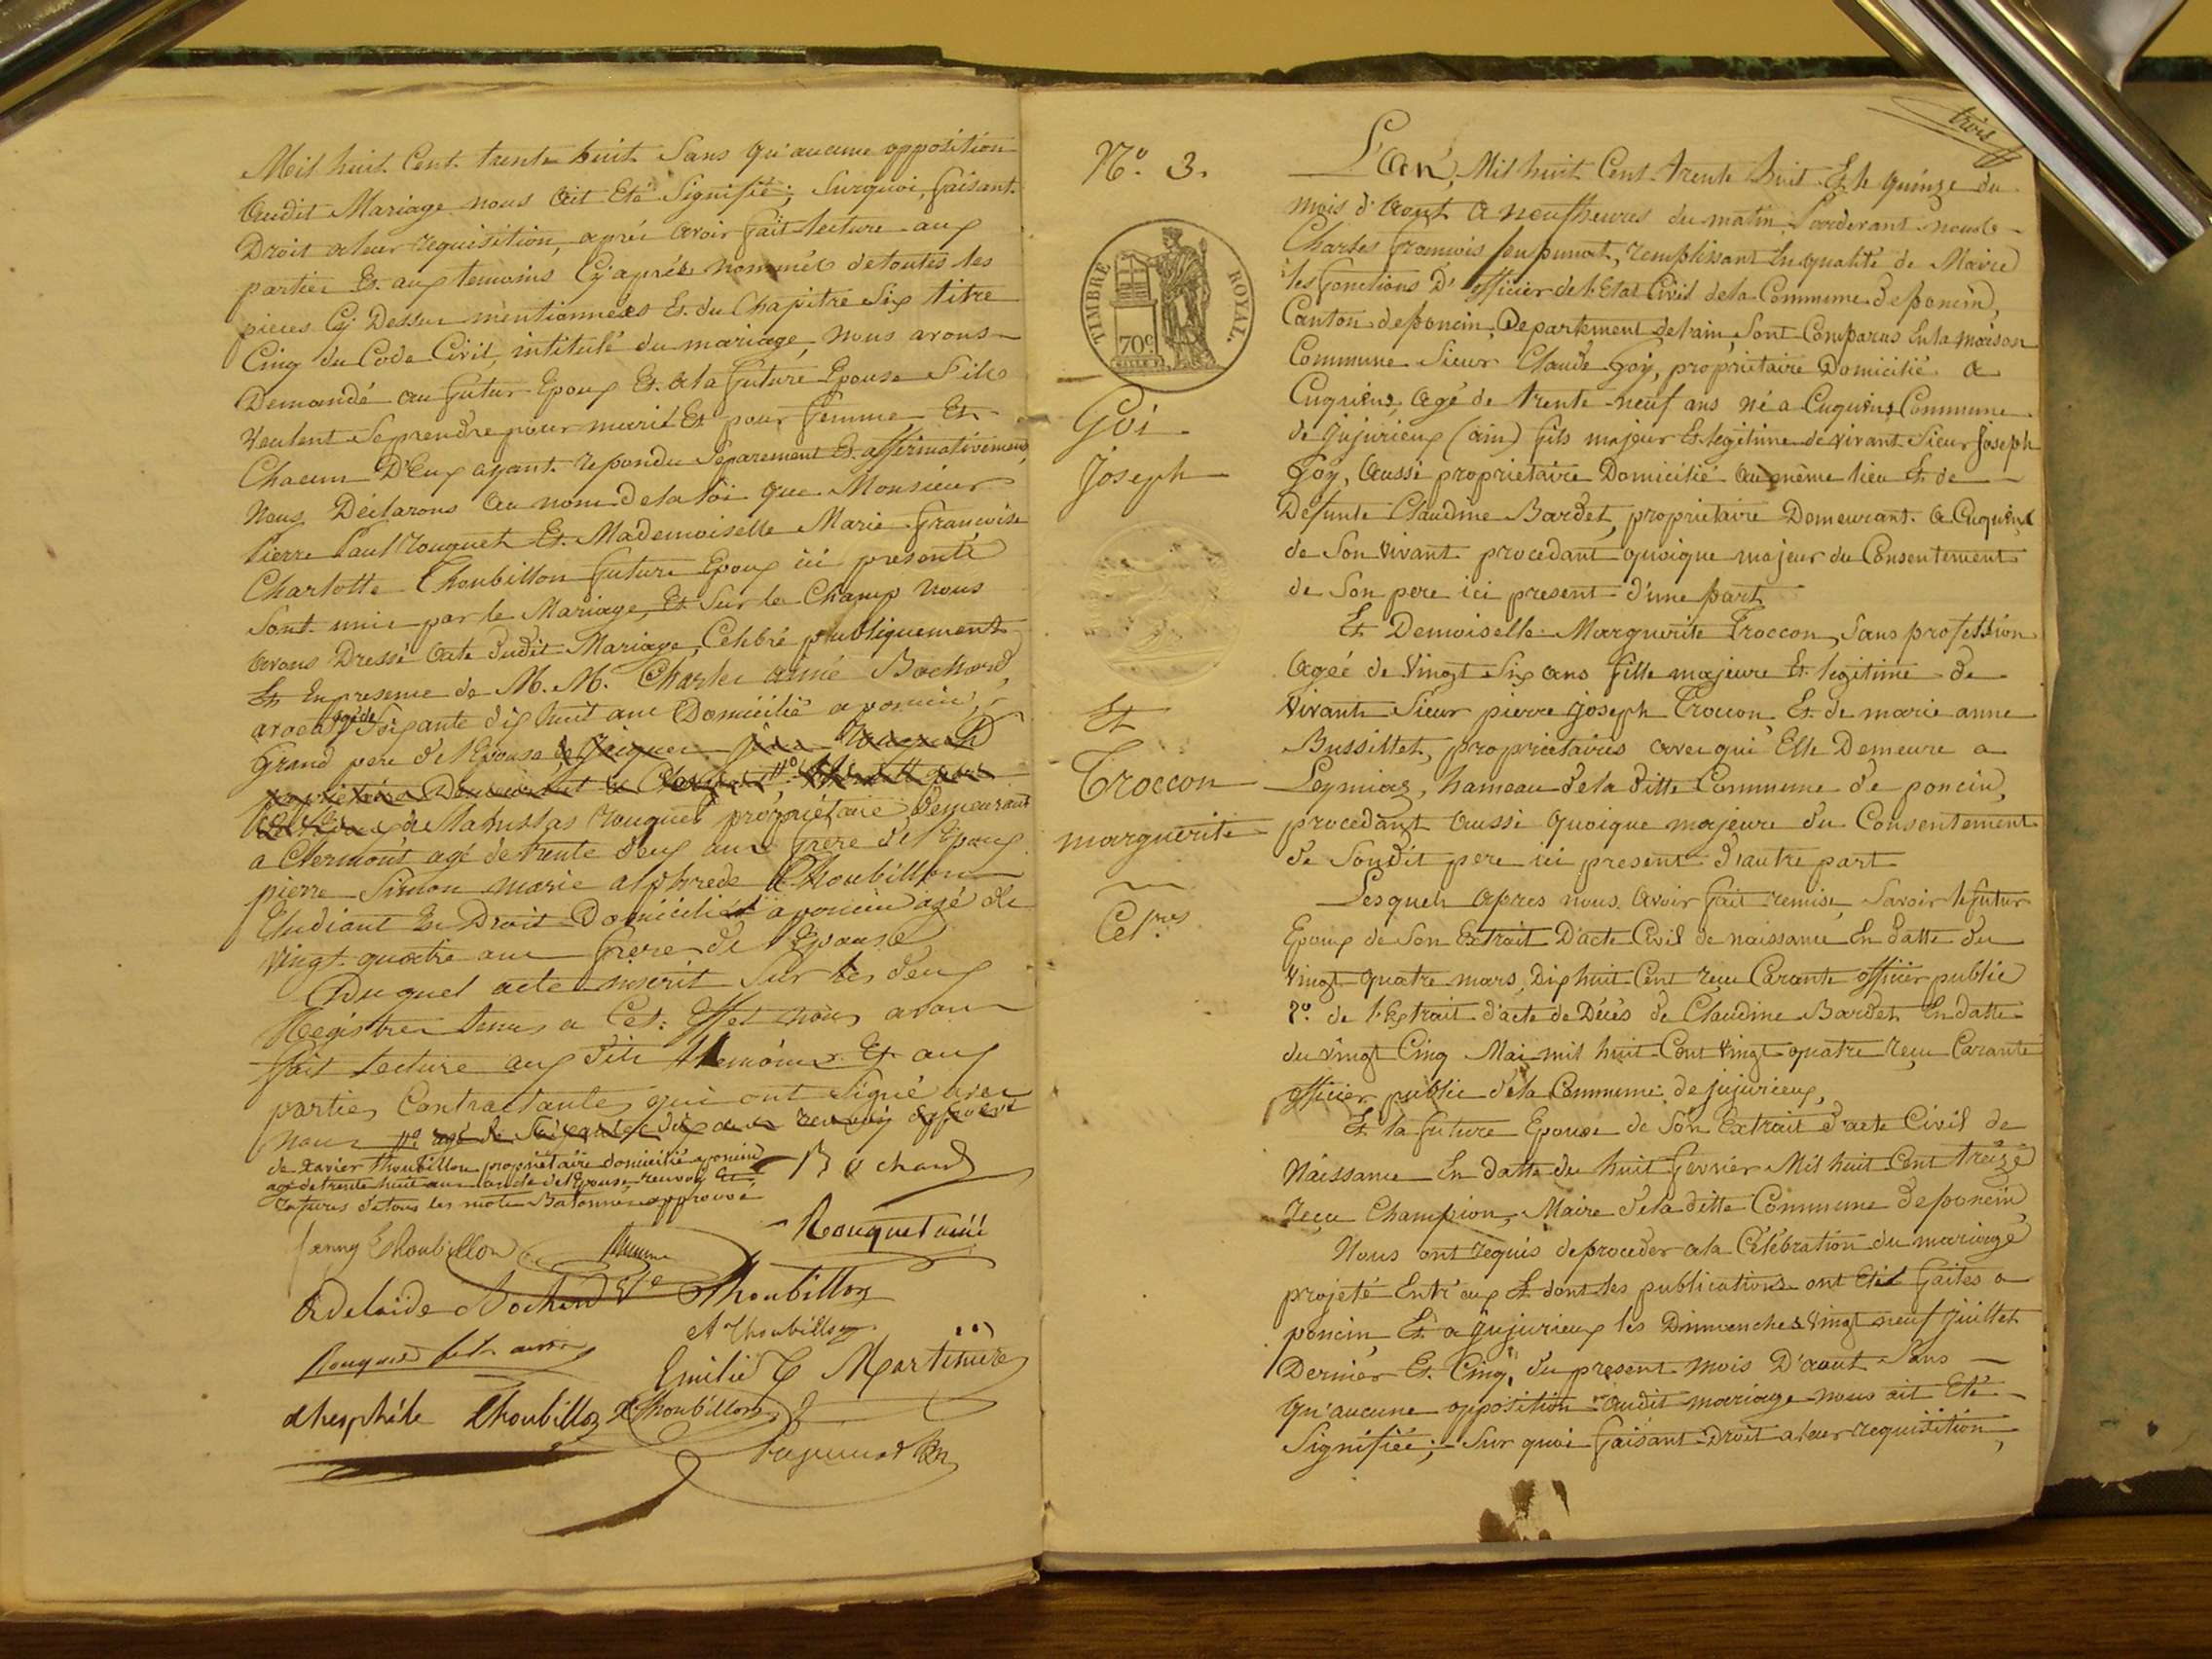 Mil huit Cent trente huit Sans qu'aucune opposition
Audit Mariage nous ait Eté Signifié; Surquoi, faisant
Droit a leur requisition, aprés avoir fait lecture aux
parties Et aux temoins Cy aprés nommés de toutes les
pieces Cy Dessus mentionnées Et du Chapitre Six titre
Cinq du Code Civil, intitulé du mariage, nous avons
Demandé au futur Epoux Et a la future Epouse S'ils
Veulent Se prendre pour mari Et pour femme Et
Chacun D'Eux ayant repondu Separement Et affirmativement,
Nous Déclarons au nom de la loi que Monsieur
Pierre Paul rouquet Et Mademoiselle Marie françoise
Charlotte Thoubillon future Epoux ici presente
Sont unis par le Mariage, Et Sur le Champ nous
avons Dressé acte dudit Mariage, Celebré publiquement
Et En presence de M. M. Charles aimé Bochard,
avocat agé de Soixante dix huit ans Domicilié a poncin,
Grand pere de l'Epouse
Stanislas rouquet propriétaire demeurant
a Clermont agé de trente deux ans frere de l'Epoux
pierre Simon marie alphrede Thoubillon
Etudiant En Droit Domicilié a poncin agé de
Vingt quatre ans frere de l'Epouse
Duquel acte inscrit Sur les deux
Registres tenus a Cet Effet nous avons
fait Lecture aux dits temoins Et aux
parties Contractantes qui ont Signé avec
nous
de Xavier Thoubillon propriétaire domicilié a poncin
agé de trente huit ans oncle de l'Epouse, renvoy Et
ratures de tous les mots Batonnés approuvé
Bochard
Rouquet ainé
fanny Thoubillon
Adelaide Bochard Thoubillon
et Thoubillon
Rouquet
Emilie Martinière
Thoubillon Thoubillon
trois
N.º 3.
L'an, Mil huit Cent trente huit Et le quinze du
mois d'aout a neuf heures du matin, Pardevant nous
Charles françois, remplissant En qualité de Maire
les fonctions D'officier de l'Etat Civil de la Commune de poncin,
Canton de poncin, Departement de l'ain, Sont Comparus En la maison
TIMBRE ROYAL.
70c
Commune Sieur Claude Goy, propriétaire Domicilié a
Cuquens, agé de trente neuf ans né a Cuquens Commune
Goi
de Jujurieux (ain) fils majeur Et legitime de vivant Sieur Joseph
Joseph
Goy, aussi propriétaire Domicilié au même lieu Et de
Defunte Claudine Bardet, propriétaire Demeurant a Cuquens
de Son vivant procedant quoique majeur du Consentement
de Son pere ici present d'une part
Et Demoiselle Marguerite Troccon, Sans profession
Agée de Vingt Six ans fille majeure Et legitime de
Et
Vivants Sieur pierre joseph Troccon Et de marie anne
Troccon
Bussillet, propriétaires avec qui Elle Demeure a
Leymiaz, hameau de la ditte Commune de poncin,
marguerite
procedant aussi quoique majeure du Consentement
de Sondit pere ici present d'autre part
Lesquels apres nous avoir fait remise, Savoir le futur
Epoux de Son Extrait D'acte Civil de naissance En datte du
Vingt quatre mars, Dix huit Cent reçu Carante officier public
2º de l'Extrait d'acte de Décés de Claudine Bardet En datte
du Vingt Cinq Mai mil huit Cent Vingt quatre reçu Carante
officier public de la Commune de jujurieux,
Et la future Epouse de Son Extrait d'acte Civil de
Naissance En datte du huit fevrier Mil huit Cent treize
reçu Champion, Maire de la ditte Commune de poncin
Nous ont requis de proceder a la Célébration du mariage
projeté Entr'eux Et dont les publications ont Eté faites a
poncin, Et a Jujurieux les Dimanches Vingt neuf juillet
Dernier Et Cinq du present mois D'aout Sans
qu'aucune opposition audit mariage nous ait Eté
Signifiée; Sur quoi faisant Droit a leur requisition,